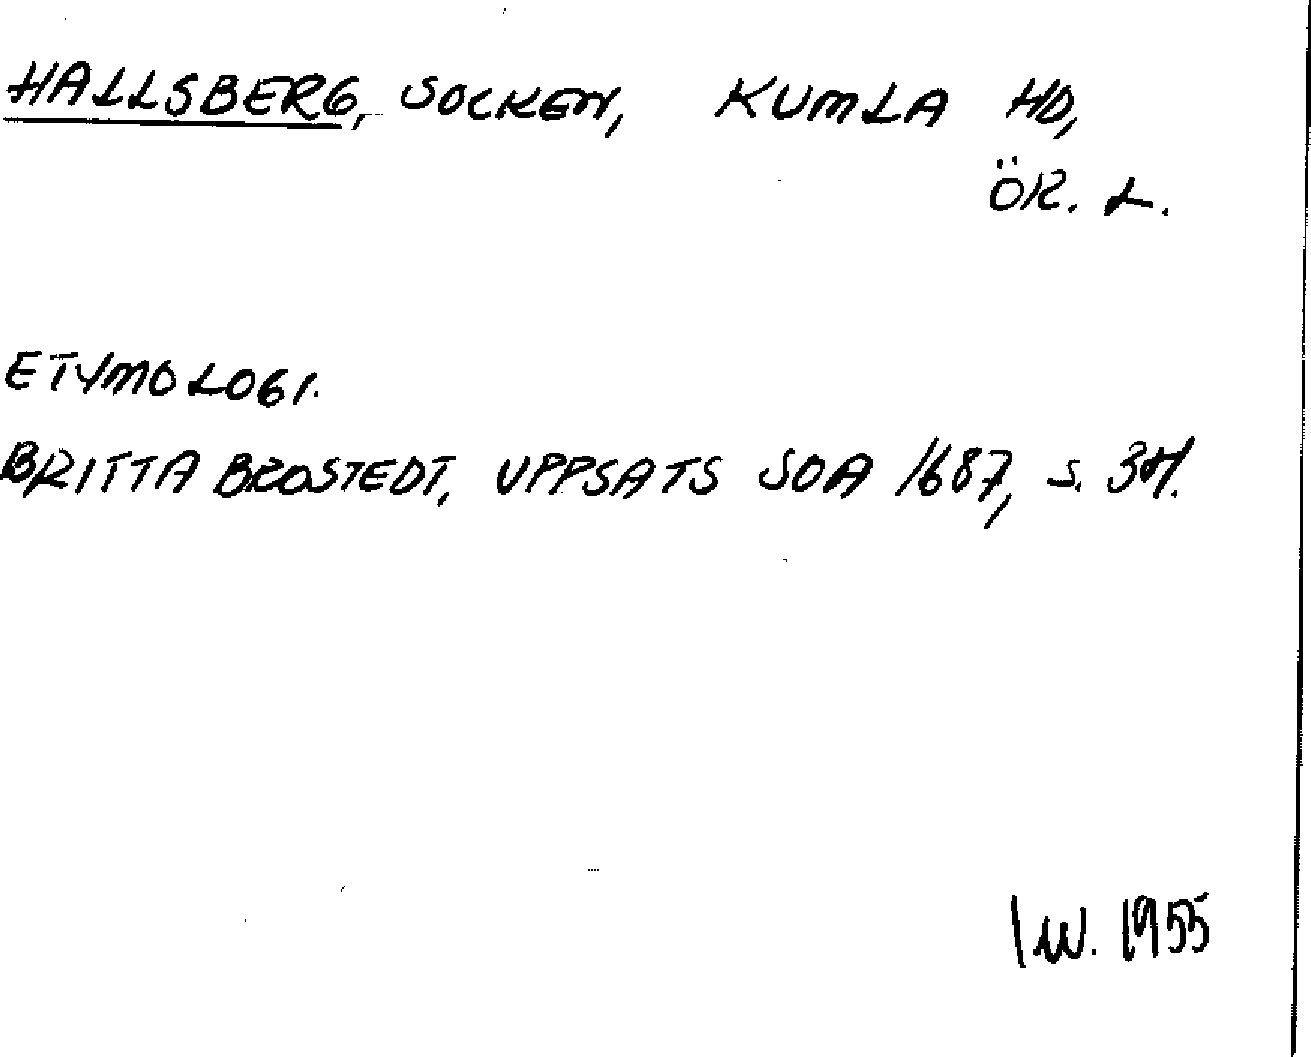 HALLSBERG, SOCKEN, KUMLA HD,
ÖR. L.
ETYMOLOGI.
BRITTA BROSTEDT, UPPSATS SOA 1687, s. 34.
IW. 1955